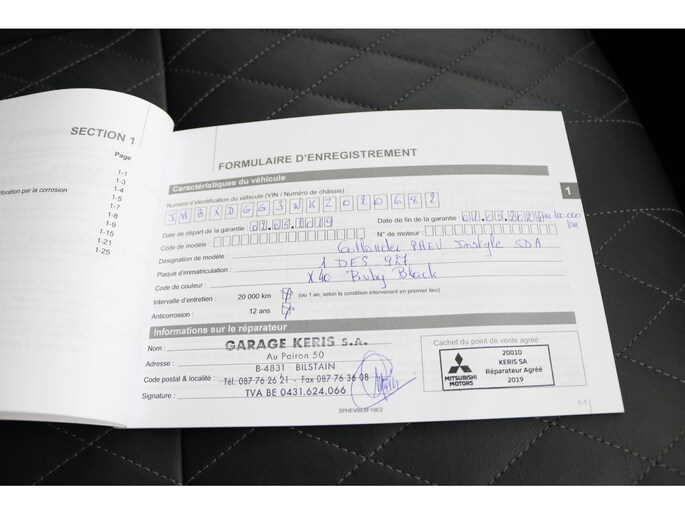 SECTION 1
Page
1-1
1-3
1-4
perforation par la corrosion
1-5
1-7
1-8
1-9
1-15
1-21
1-25
FORMULAIRE D'ENREGISTREMENT
Caractéristiques du véhicule
1
Numéro d'identification du véhicule (VIN / Numéro de châssis) :
JMBXDGG3WKZ020682
Date de départ de la garantie : 02.05.2019 Date de fin de la garantie :
Code de modèle : N° de moteur :
Désignation de modèle : Outlander PHEV Instyle SDA
Plaque d'immatriculation : 1 DES 927
Code de couleur : X40 Ruby Black
Intervalle d'entretien : 20 000 km (ou 1 an, selon la condition intervenant en premier lieu)
Anticorrosion : 12 ans
Informations sur le réparateur
Nom : GARAGE KERIS S.A.
Adresse : Au Pairon 50
B-4831 BILSTAIN
Code postal & localité : Tél. 087 76 26 21 - Fax 087 76 36 08
Signature : TVA BE 0431.624.066
Cachet du point de vente agréé :
MITSUBISHI MOTORS
20010
KERIS SA
Réparateur Agréé
2019